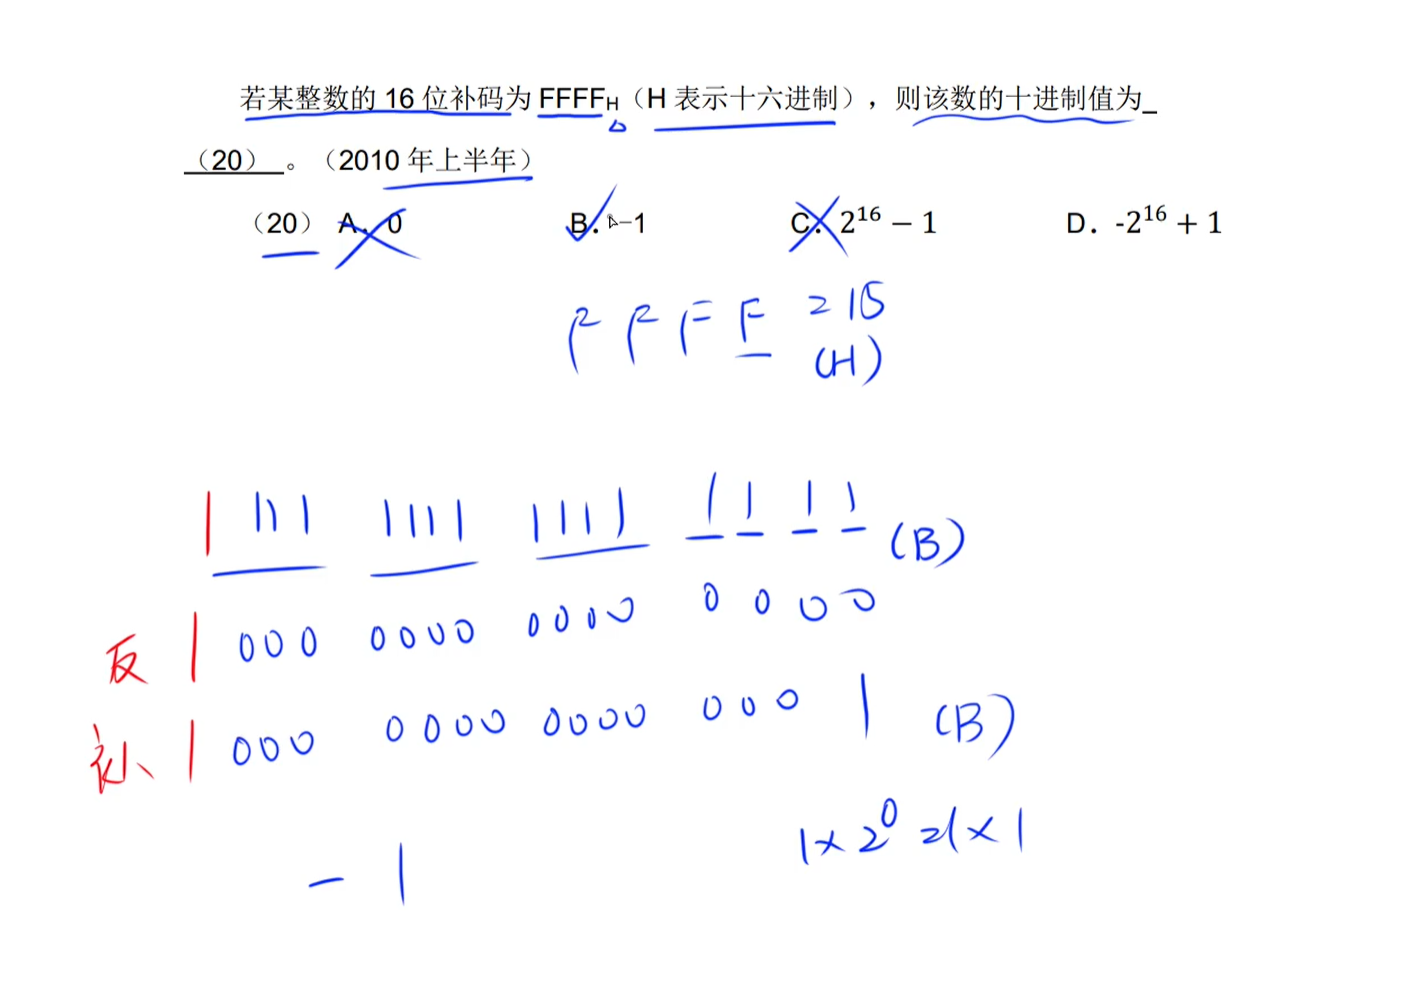 若某整数的 16 位补码为 FFFFH（H 表示十六进制），则该数的十进制值为_
（20）。（2010 年上半年）
（20） A. 0 B. -1 C. 2^16 − 1 D. -2^16 + 1
F F F F = 15
(H)
1 111 1111 1111 1 1 1 1 (B)
反 1 000 0000 0000 0 0 0 0
补 1 000 0000 0000 000 1 (B)
1 × 2^0 = 1 × 1
− 1